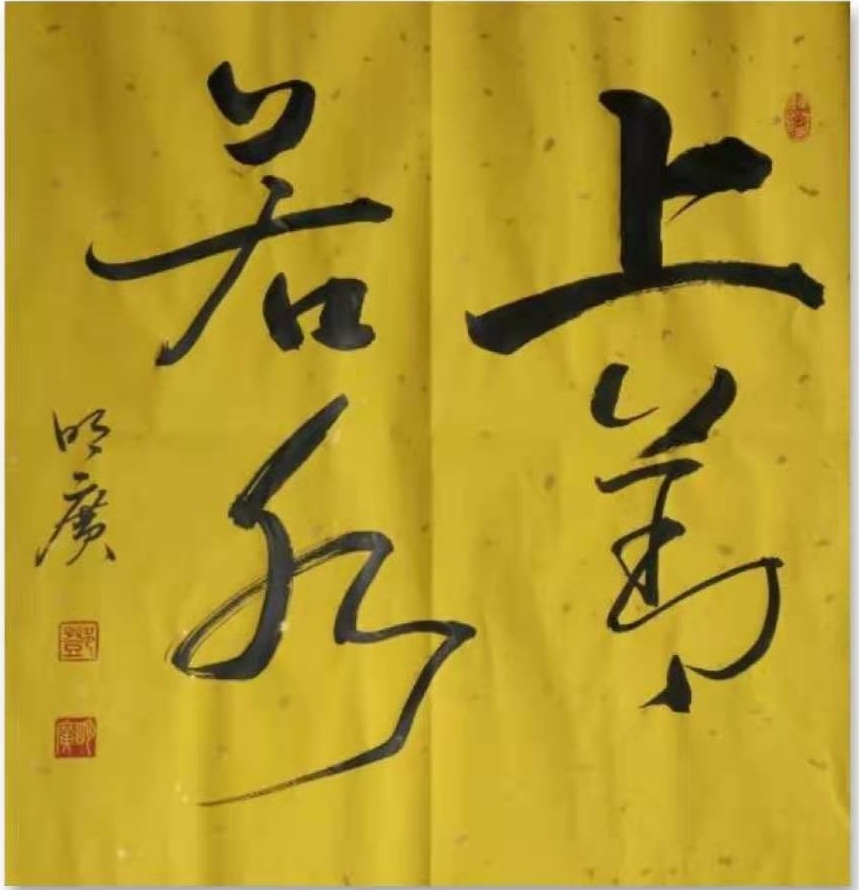 上善
若水
明广